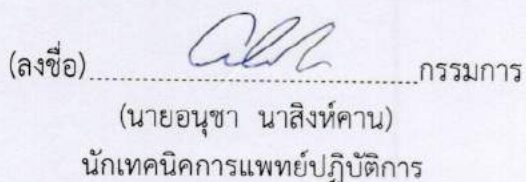 (ลงชื่อ)........................................กรรมการ
(นายอนุชา นาสิงห์คาน)
นักเทคนิคการแพทย์ปฏิบัติการ